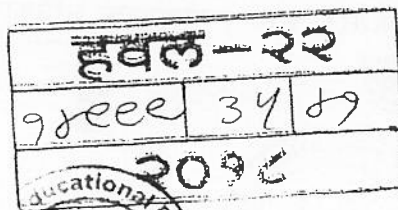 हवल-२२
१४९९९ ३५ ४१
२०१८
ducational